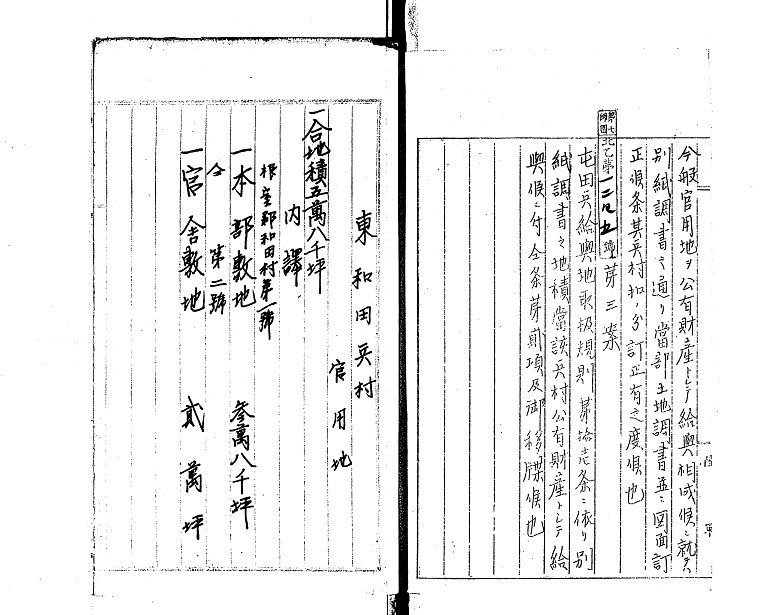 今般官用地ヲ公有財産トシテ給與相成候ニ就テハ
別紙調書之通リ當部土地調書並ニ図面訂
正候条其兵村扣ノ分訂正有之度候也
北乙第一二〇五號 第三案
屯田兵給與地取扱規則第拾壱条ニ依リ別
紙調書之地積當該兵村公有財産トシテ給
與候ニ付仝条第貳項及御移牒候也
東和田兵村
官用地
一合地積五萬八千坪
内譯
根室郡和田村第一號
一本部敷地 参萬八千坪
仝 第二號
一官舎敷地 貳萬坪